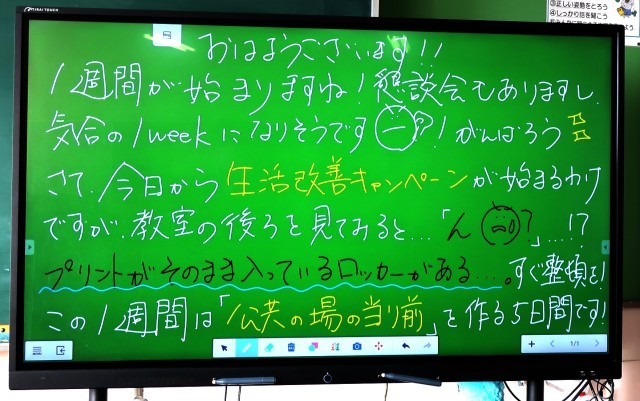 MIRAI TOUCH
③正しい姿勢をとろう
④しっかり話を聞こう
おはようございます!!
1週間が始まりますね!懇談会もありますし、
気合の1weekになりそうです?!がんばろう
さて、今日から生活改善キャンペーンが始まるわけ
ですが、教室の後ろを見てみると…「ん?」…!?
プリントがそのまま入っているロッカーがある…。すぐ整頓を!
この1週間は「公共の場の当り前」を作る5日間です!
1/1